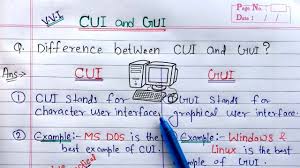 V.V.I
CUI and GUI
Page No.
Date
Q. Difference between CUI and GUI?
Ans→ CUI GUI
① CUI stands for ① GUI stands for
character user interface. graphical user interface.
② Example:- MS DOS is the ② Example:- Windows &
best example of CUI. Linux is the best
example of GUI